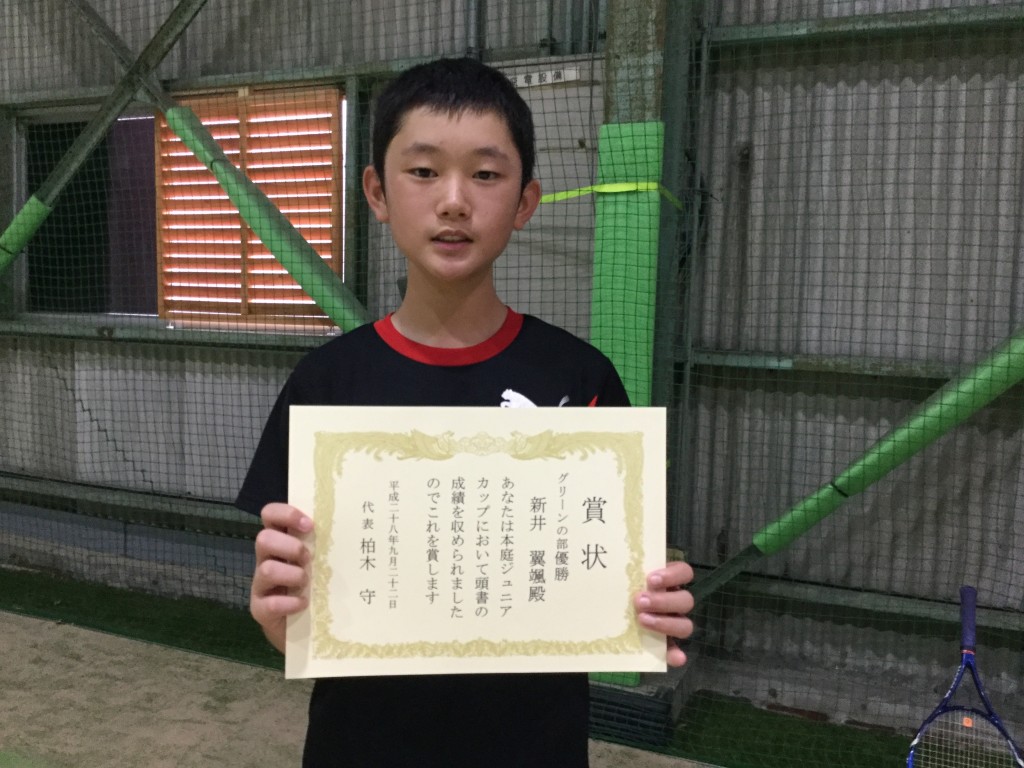 賞状
グリーンの部優勝
新井 翼颯殿
あなたは本庭ジュニア
カップにおいて頭書の
成績を収められました
のでこれを賞します
平成二十八年九月二十二日
代表 柏木 守